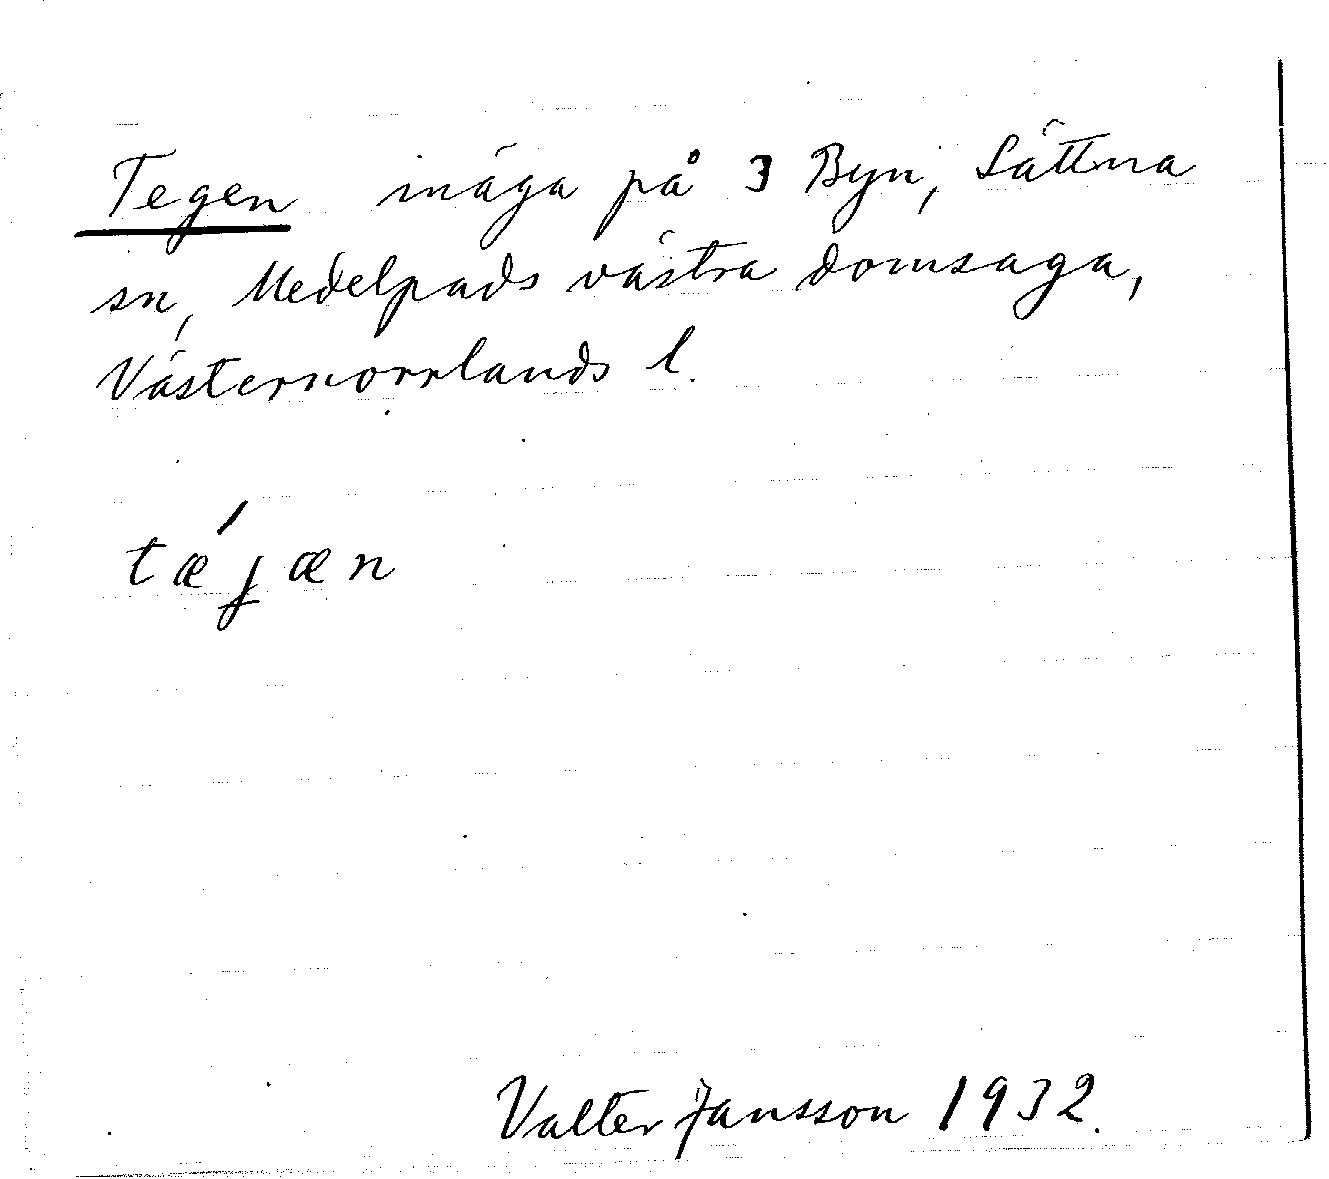 Tegen inäga på 3 Byn, Sättna
sn, Medelpads västra domsaga,
Västernorrlands l.
tǽjæn
Valter Jansson 1932.